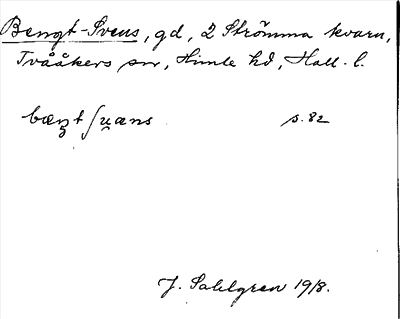 Bengt-Svens, gd, 2 Strömma kvarn,
Tvååkers sn, Himle hd, Hall. l.
bæŋt ʃu̯æns s. 82
J. Sahlgren 1918.